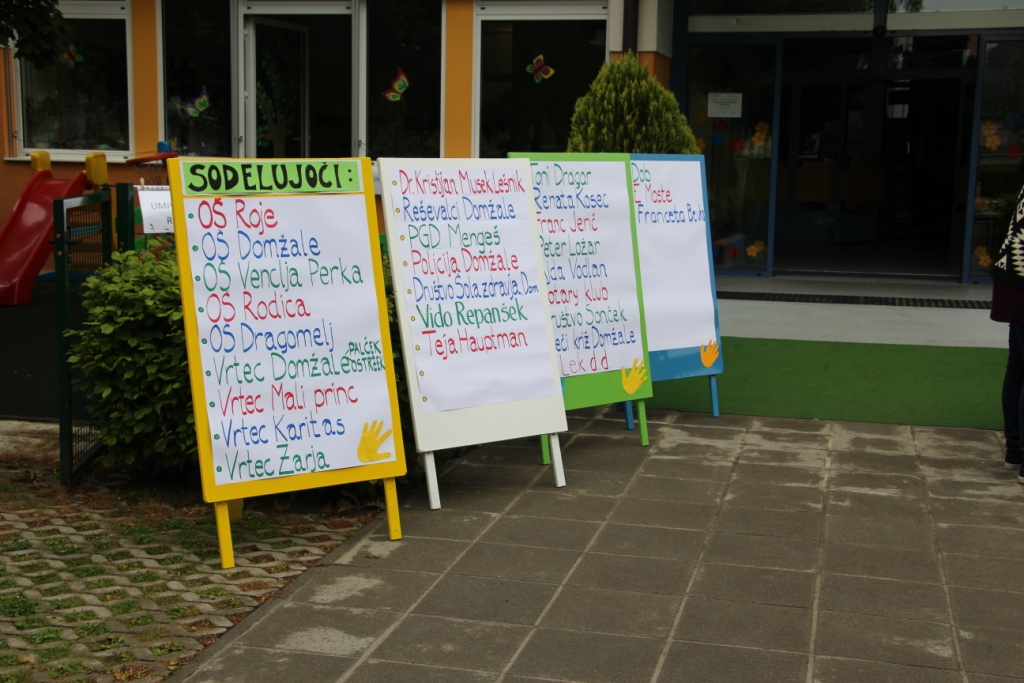 SODELUJOČI:
OŠ Roje
OŠ Domžale
OŠ Venclja Perka
OŠ Rodica
OŠ Dragomelj
Vrtec Domžale PALČEK OSTRŽEK
Vrtec Mali princ
Vrtec Karitas
Vrtec Zarja
Dr. Kristijan Musek Lešnik
Reševalci Domžale
PGD Mengeš
Policija Domžale
Društvo Šola zdravja Dom
Vido Repanšek
Teja Hauptman
Toni Dragar
Renata Kosec
Franc Jerič
Peter Ložar
Vodlan
otary klub
ruštvo Sonček
eči križ Domžale
Lek d d
Dob
I Moste
Franceta